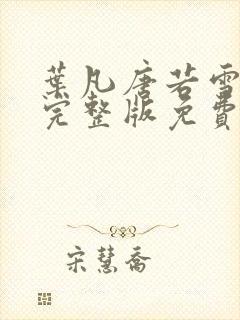 葉凡唐若雪
完整版免費
宋慧喬